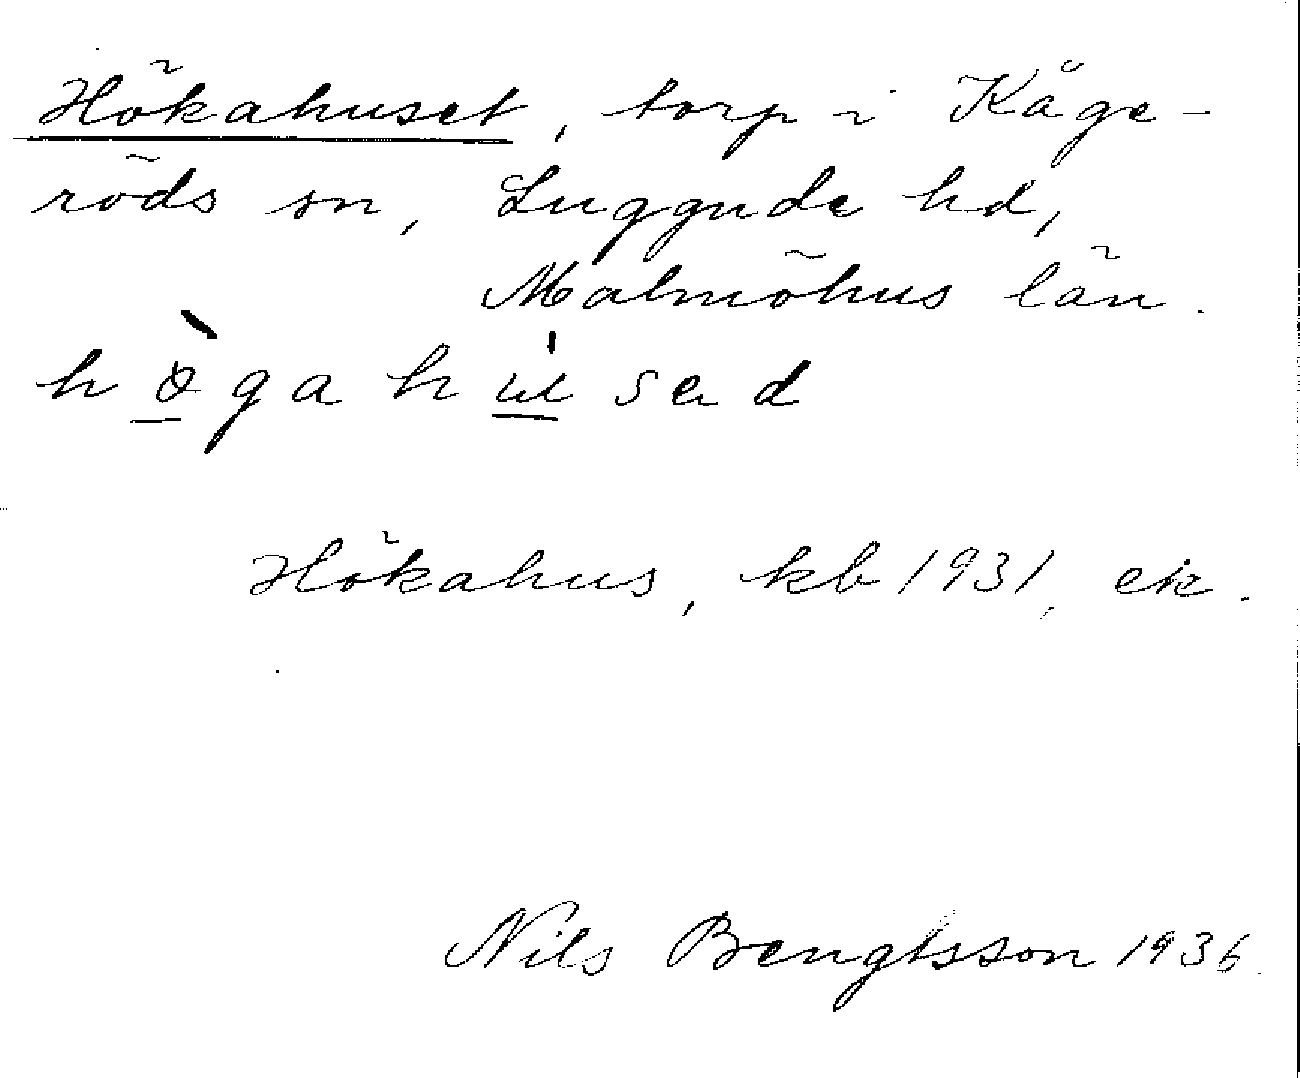 Hökahuset, torp i Kåge-
röds sn, Luggude hd,
Malmöhus län.
högahused
Hökahus, kb 1931, ek.
Nils Bengtsson 1936.